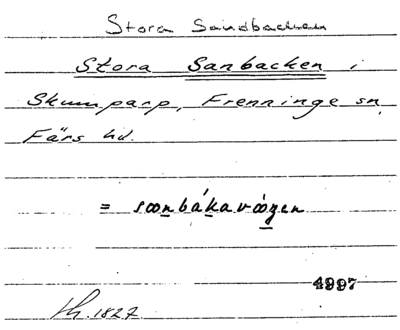 Stora Sandbacken
Stora Sanbacken i
Skumparp, Frenninge sn,
Färs hd.
= sωnbákavωgen
4997
1827